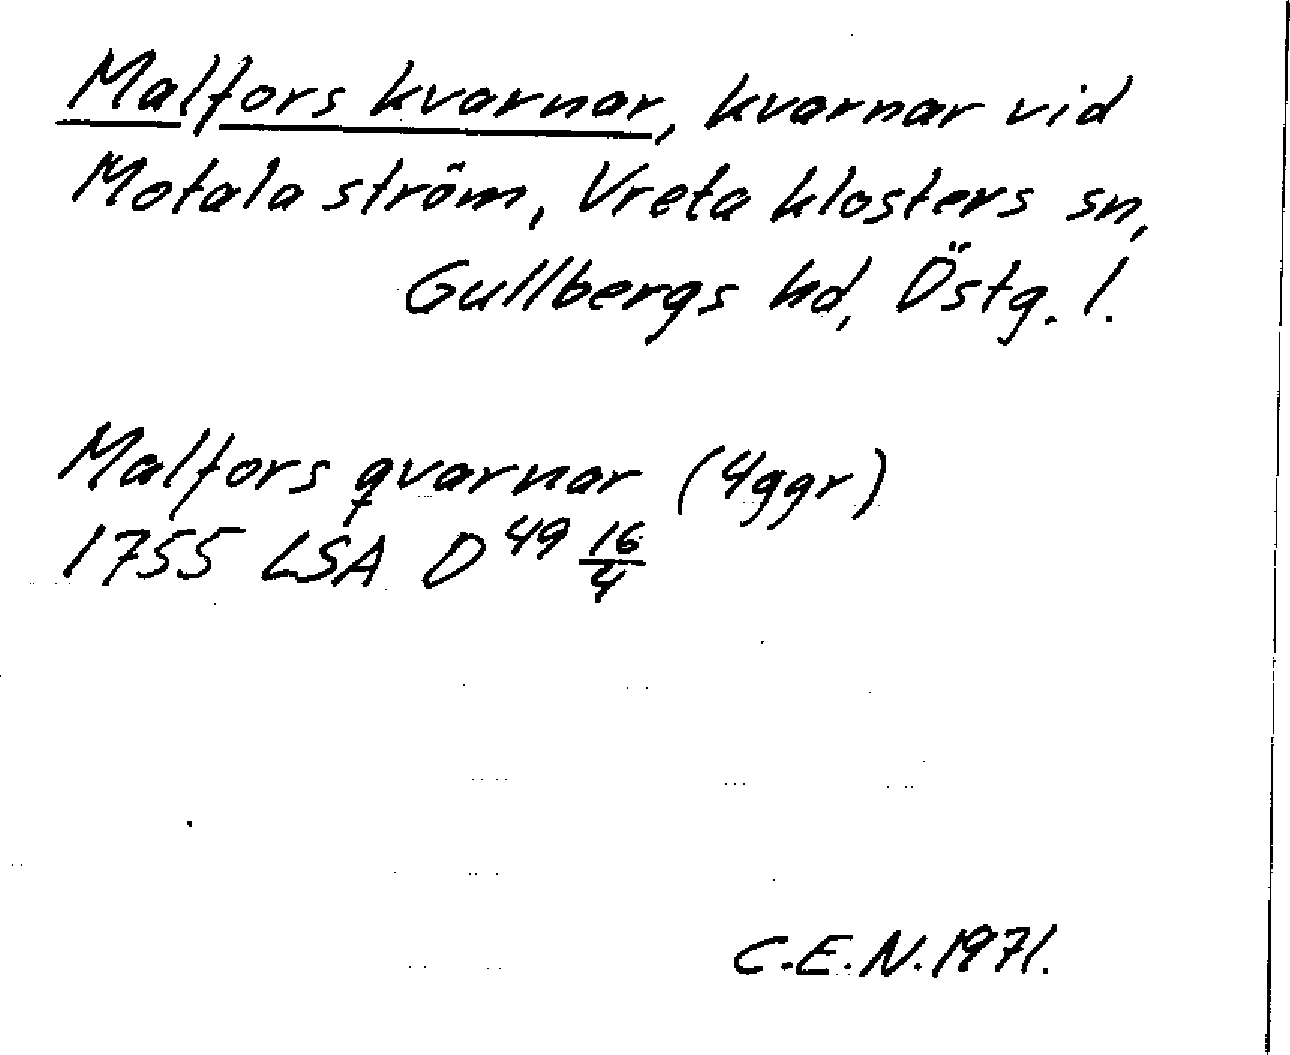 Malfors kvarnar, kvarnar vid
Motala ström, Vreta klosters sn,
Gullbergs hd, Östg. l.
Malfors qvarnar (4ggr)
1755 LSA D 49 16/4
C.E.N. 1971.